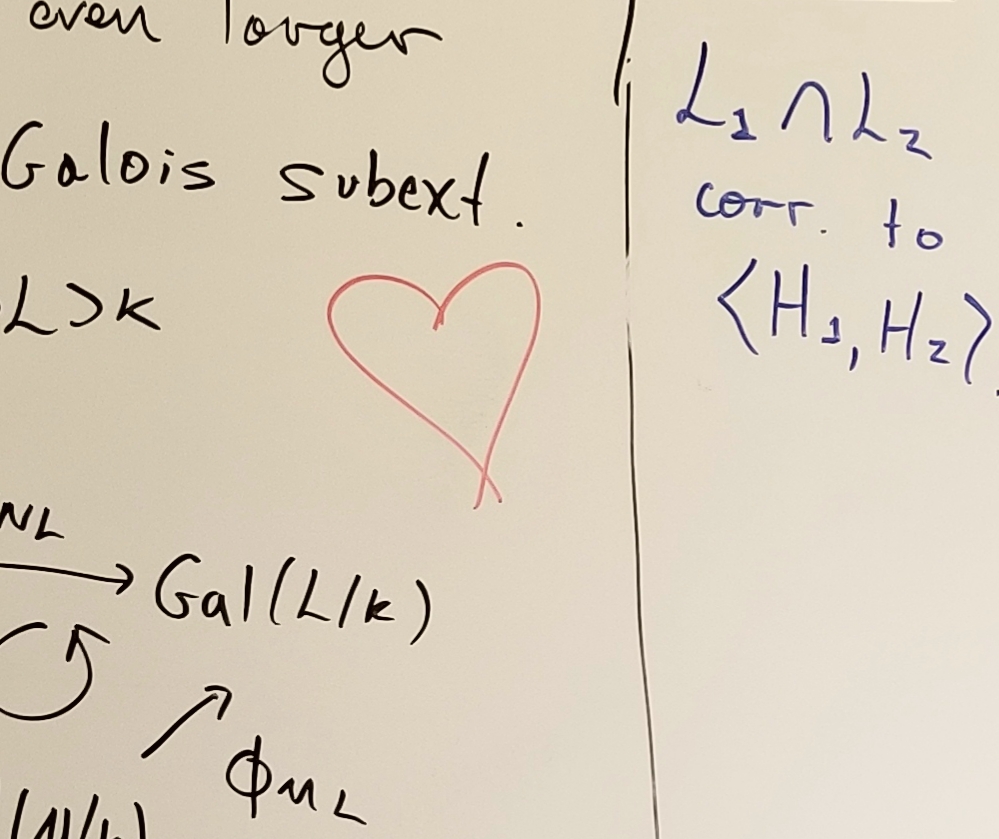 even larger
Galois subext.
L⊃k
NL
Gal(L/k)
ϕML
L1 ∩ L2
corr. to
⟨H1, H2⟩.